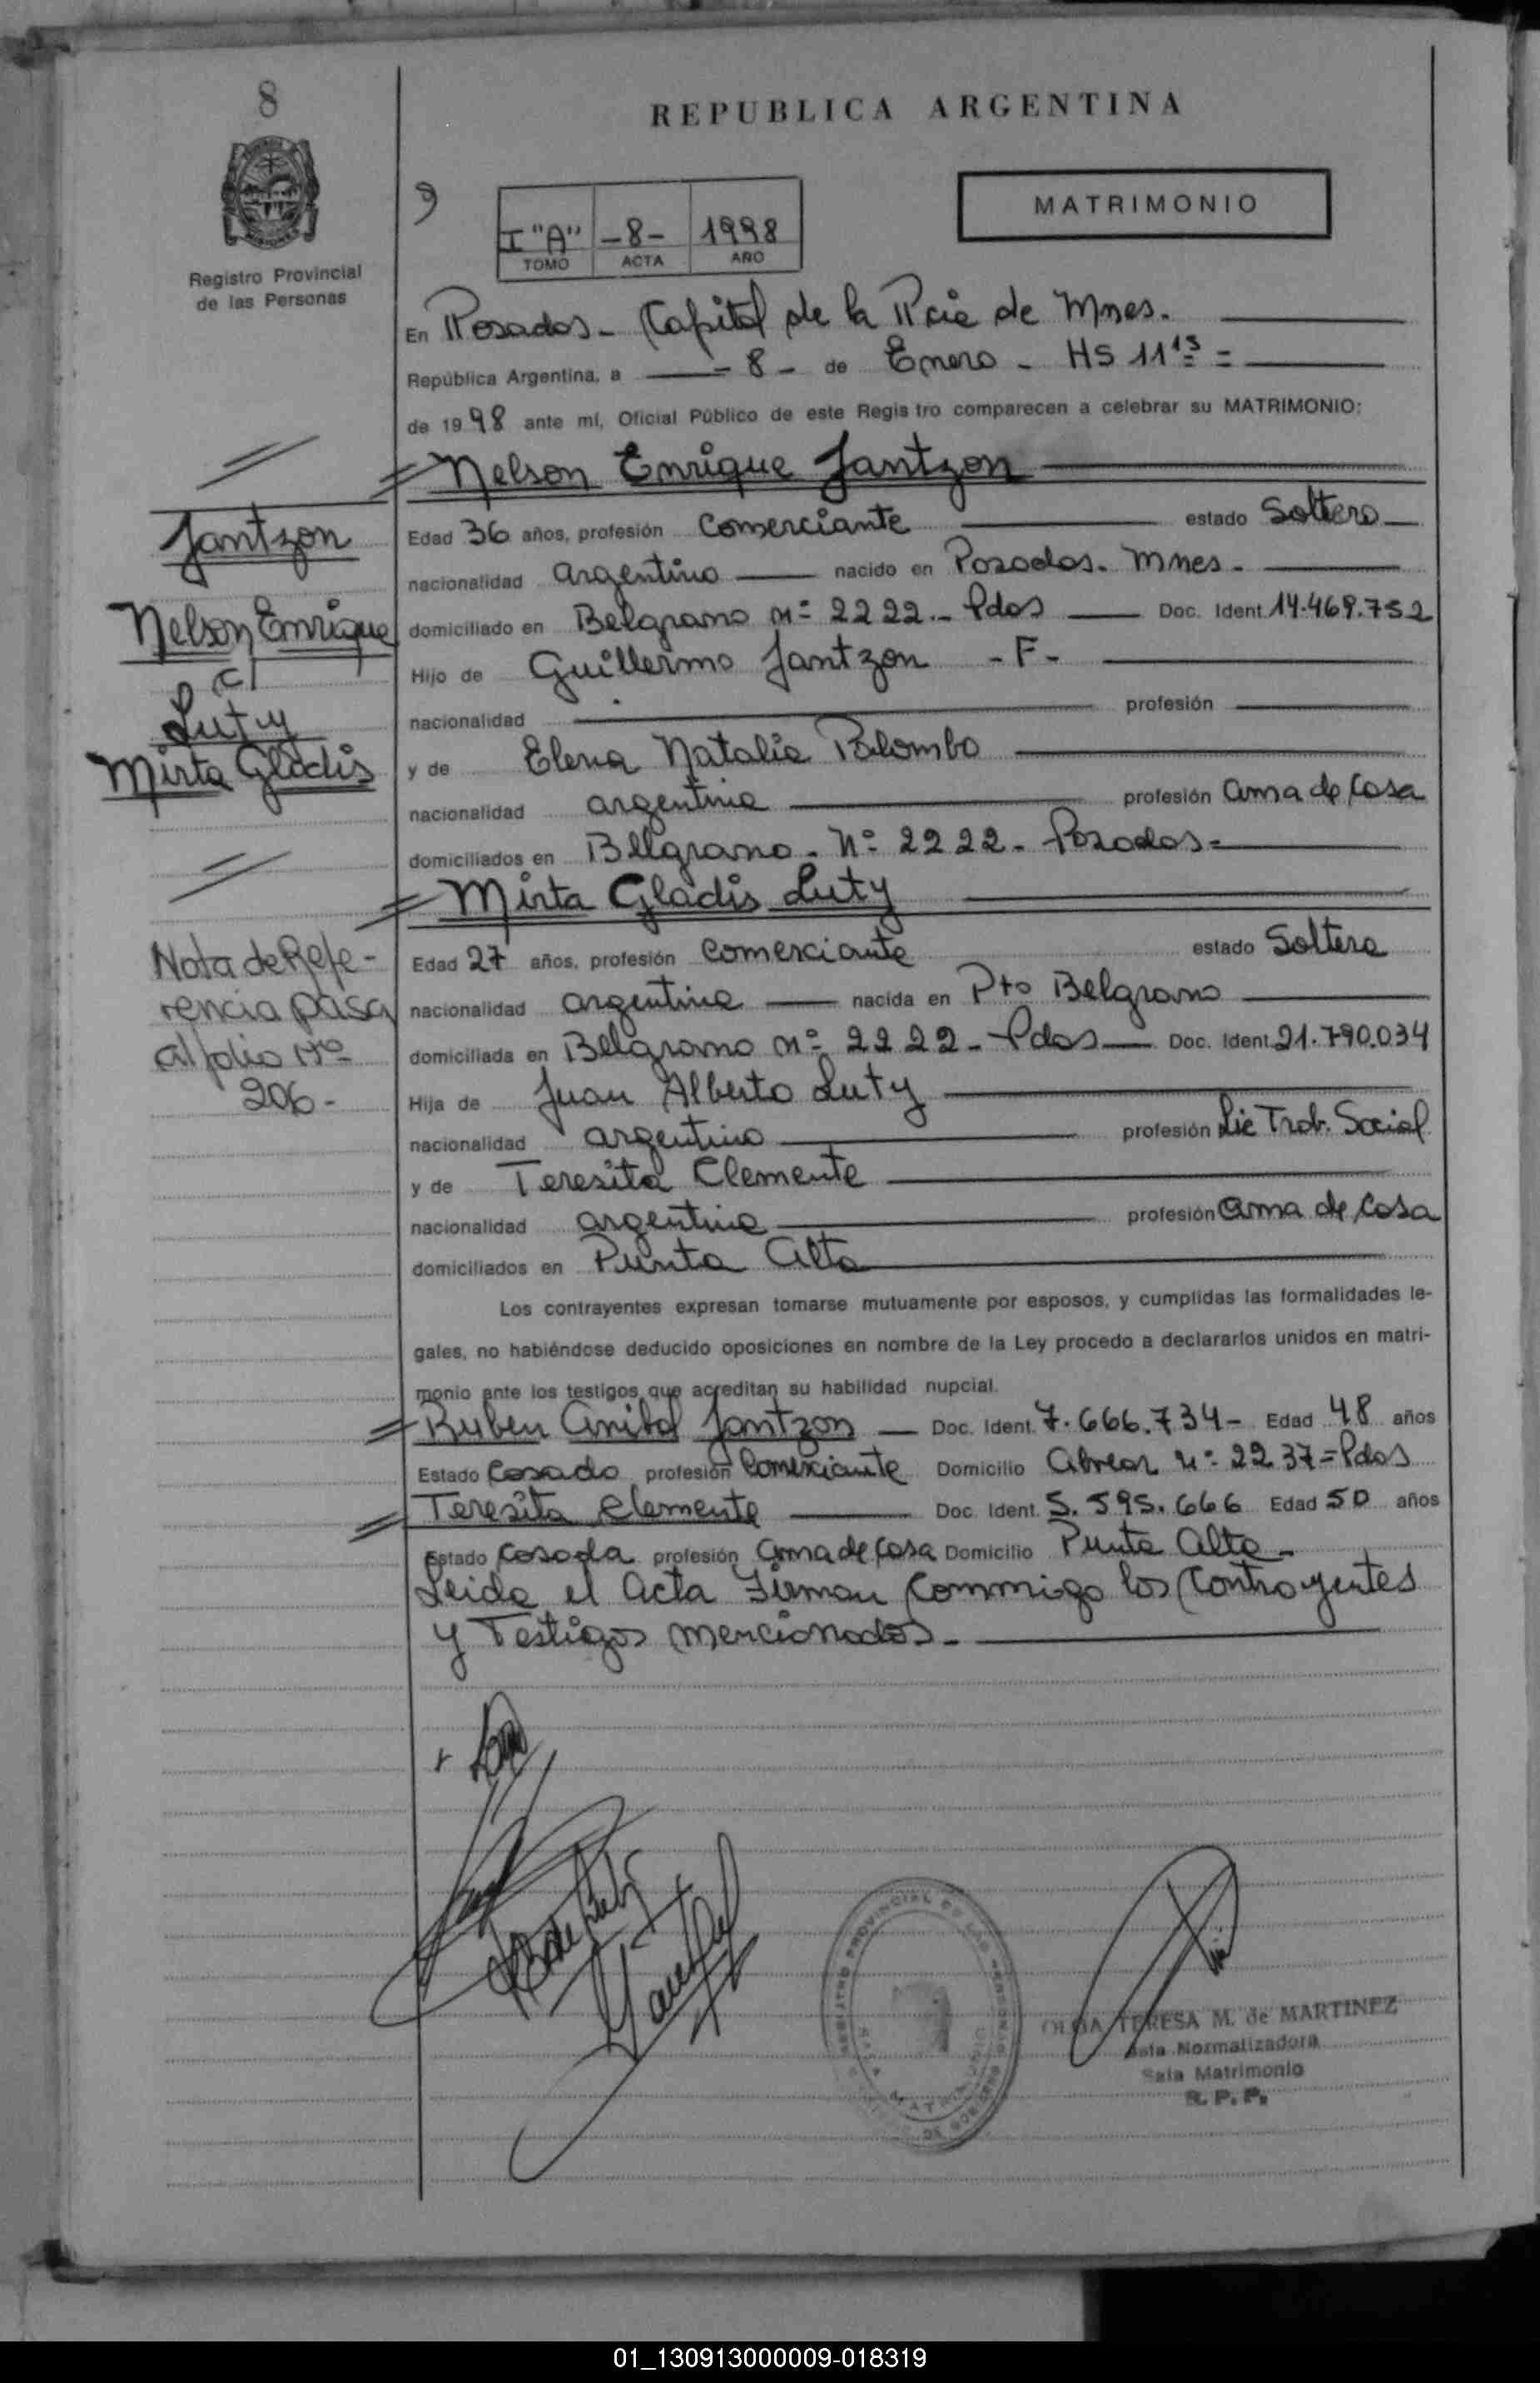 8
REPUBLICA ARGENTINA
MATRIMONIO
9
I "A" -8- 1998
TOMO ACTA AÑO
Registro Provincial
de las Personas
En Posadas - Capital de la Pcia de Mnes.
República Argentina, a - 8 - de Enero - HS 11 15 =
de 1998 ante mí, Oficial Público de este Registro comparecen a celebrar su MATRIMONIO:
Nelson Enrique Jantzon
Edad 36 años, profesión Comerciante estado Soltero
nacionalidad argentino nacido en Posadas. Mnes.
domiciliado en Belgrano nº 2222.- Pdas Doc. Ident. 14.469.752
Hijo de Guillermo Jantzon - F -
nacionalidad profesión
y de Elena Natalia Palombo
nacionalidad argentina profesión ama de Casa
domiciliados en Belgrano - Nº 2222 - Posadas =
Mirta Gladis Luty
Edad 27 años, profesión Comerciante estado Soltera
nacionalidad argentina nacida en Pto Belgrano
domiciliada en Belgrano nº 2222 - Pdas Doc. Ident. 21.790.034
Hija de Juan Alberto Luty
nacionalidad argentino profesión Lic Trab. Social
y de Teresita Clemente
nacionalidad argentina profesión ama de Casa
domiciliados en Punta Alta
Los contrayentes expresan tomarse mutuamente por esposos, y cumplidas las formalidades le-
gales, no habiéndose deducido oposiciones en nombre de la Ley procedo a declararlos unidos en matri-
monio ante los testigos que acreditan su habilidad nupcial.
Ruben Anibal Jantzon Doc. Ident. 7.666.734 - Edad 48 años
Estado Casado profesión Comerciante Domicilio Alvear nº 2237 = Pdas
Teresita Clemente Doc. Ident. 5.595.666 Edad 50 años
Estado Casada profesión Ama de Casa Domicilio Punta Alta -
Leida el Acta Firman Conmigo los Contrayentes
y Testigos mencionados -
Jantzon
Nelson Enrique
c/
Luty
Mirta Gladis
Nota de Refe-
rencia pasa
al folio Nº
206 -
OLGA TERESA M. de MARTINEZ
Normalizadora
Sala Matrimonio
R. P. P.
01_130913000009-018319